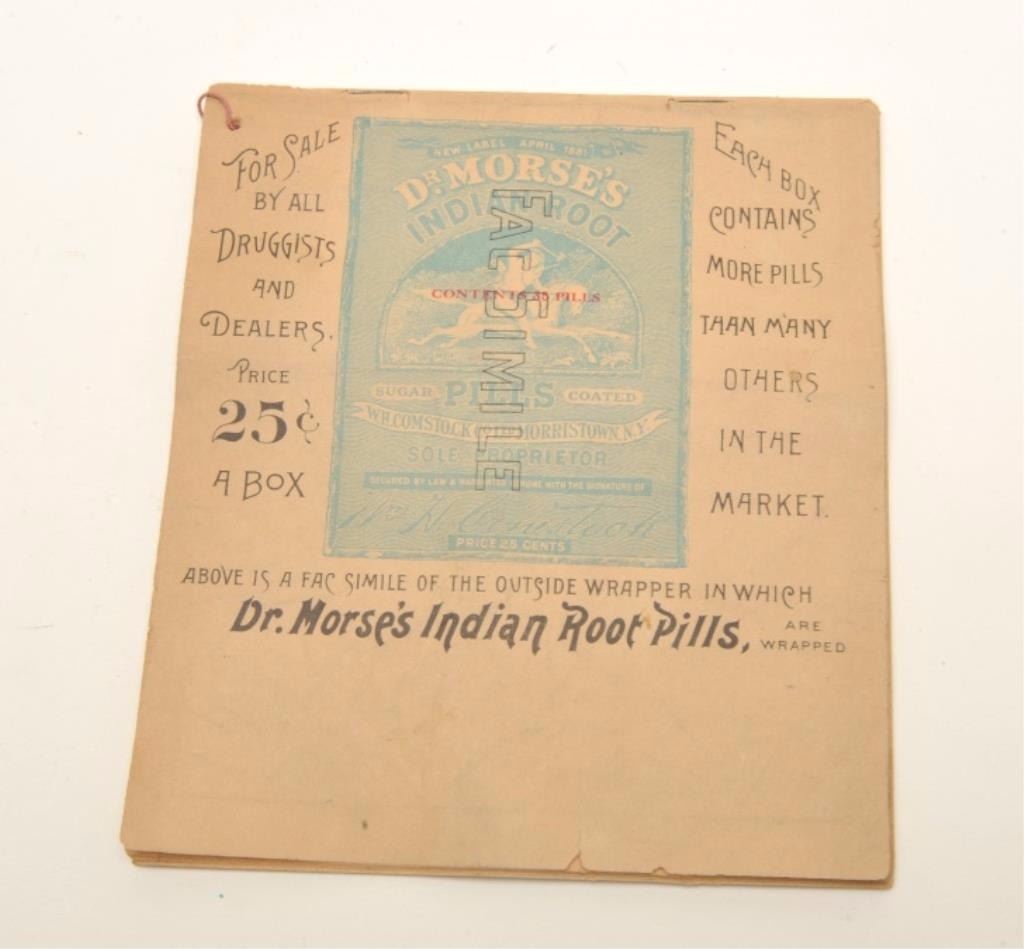 FOR SALE
BY ALL
DRUGGISTS
AND
DEALERS.
PRICE
25¢
A BOX
NEW LABEL APRIL 1881
DR. MORSE'S
INDIAN ROOT
CONTENTS 35 PILLS
SUGAR PILLS COATED
W.H. COMSTOCK Co LTD MORRISTOWN, N.Y.
SOLE PROPRIETOR
SECURED BY LAW & WARRANTED GENUINE WITH THE SIGNATURE OF
Wm H. Comstock
PRICE 25 CENTS
FAC SIMILE
EACH BOX
CONTAINS
MORE PILLS
THAN MANY
OTHERS
IN THE
MARKET.
ABOVE IS A FAC SIMILE OF THE OUTSIDE WRAPPER IN WHICH
Dr. Morse's Indian Root Pills, ARE
WRAPPED